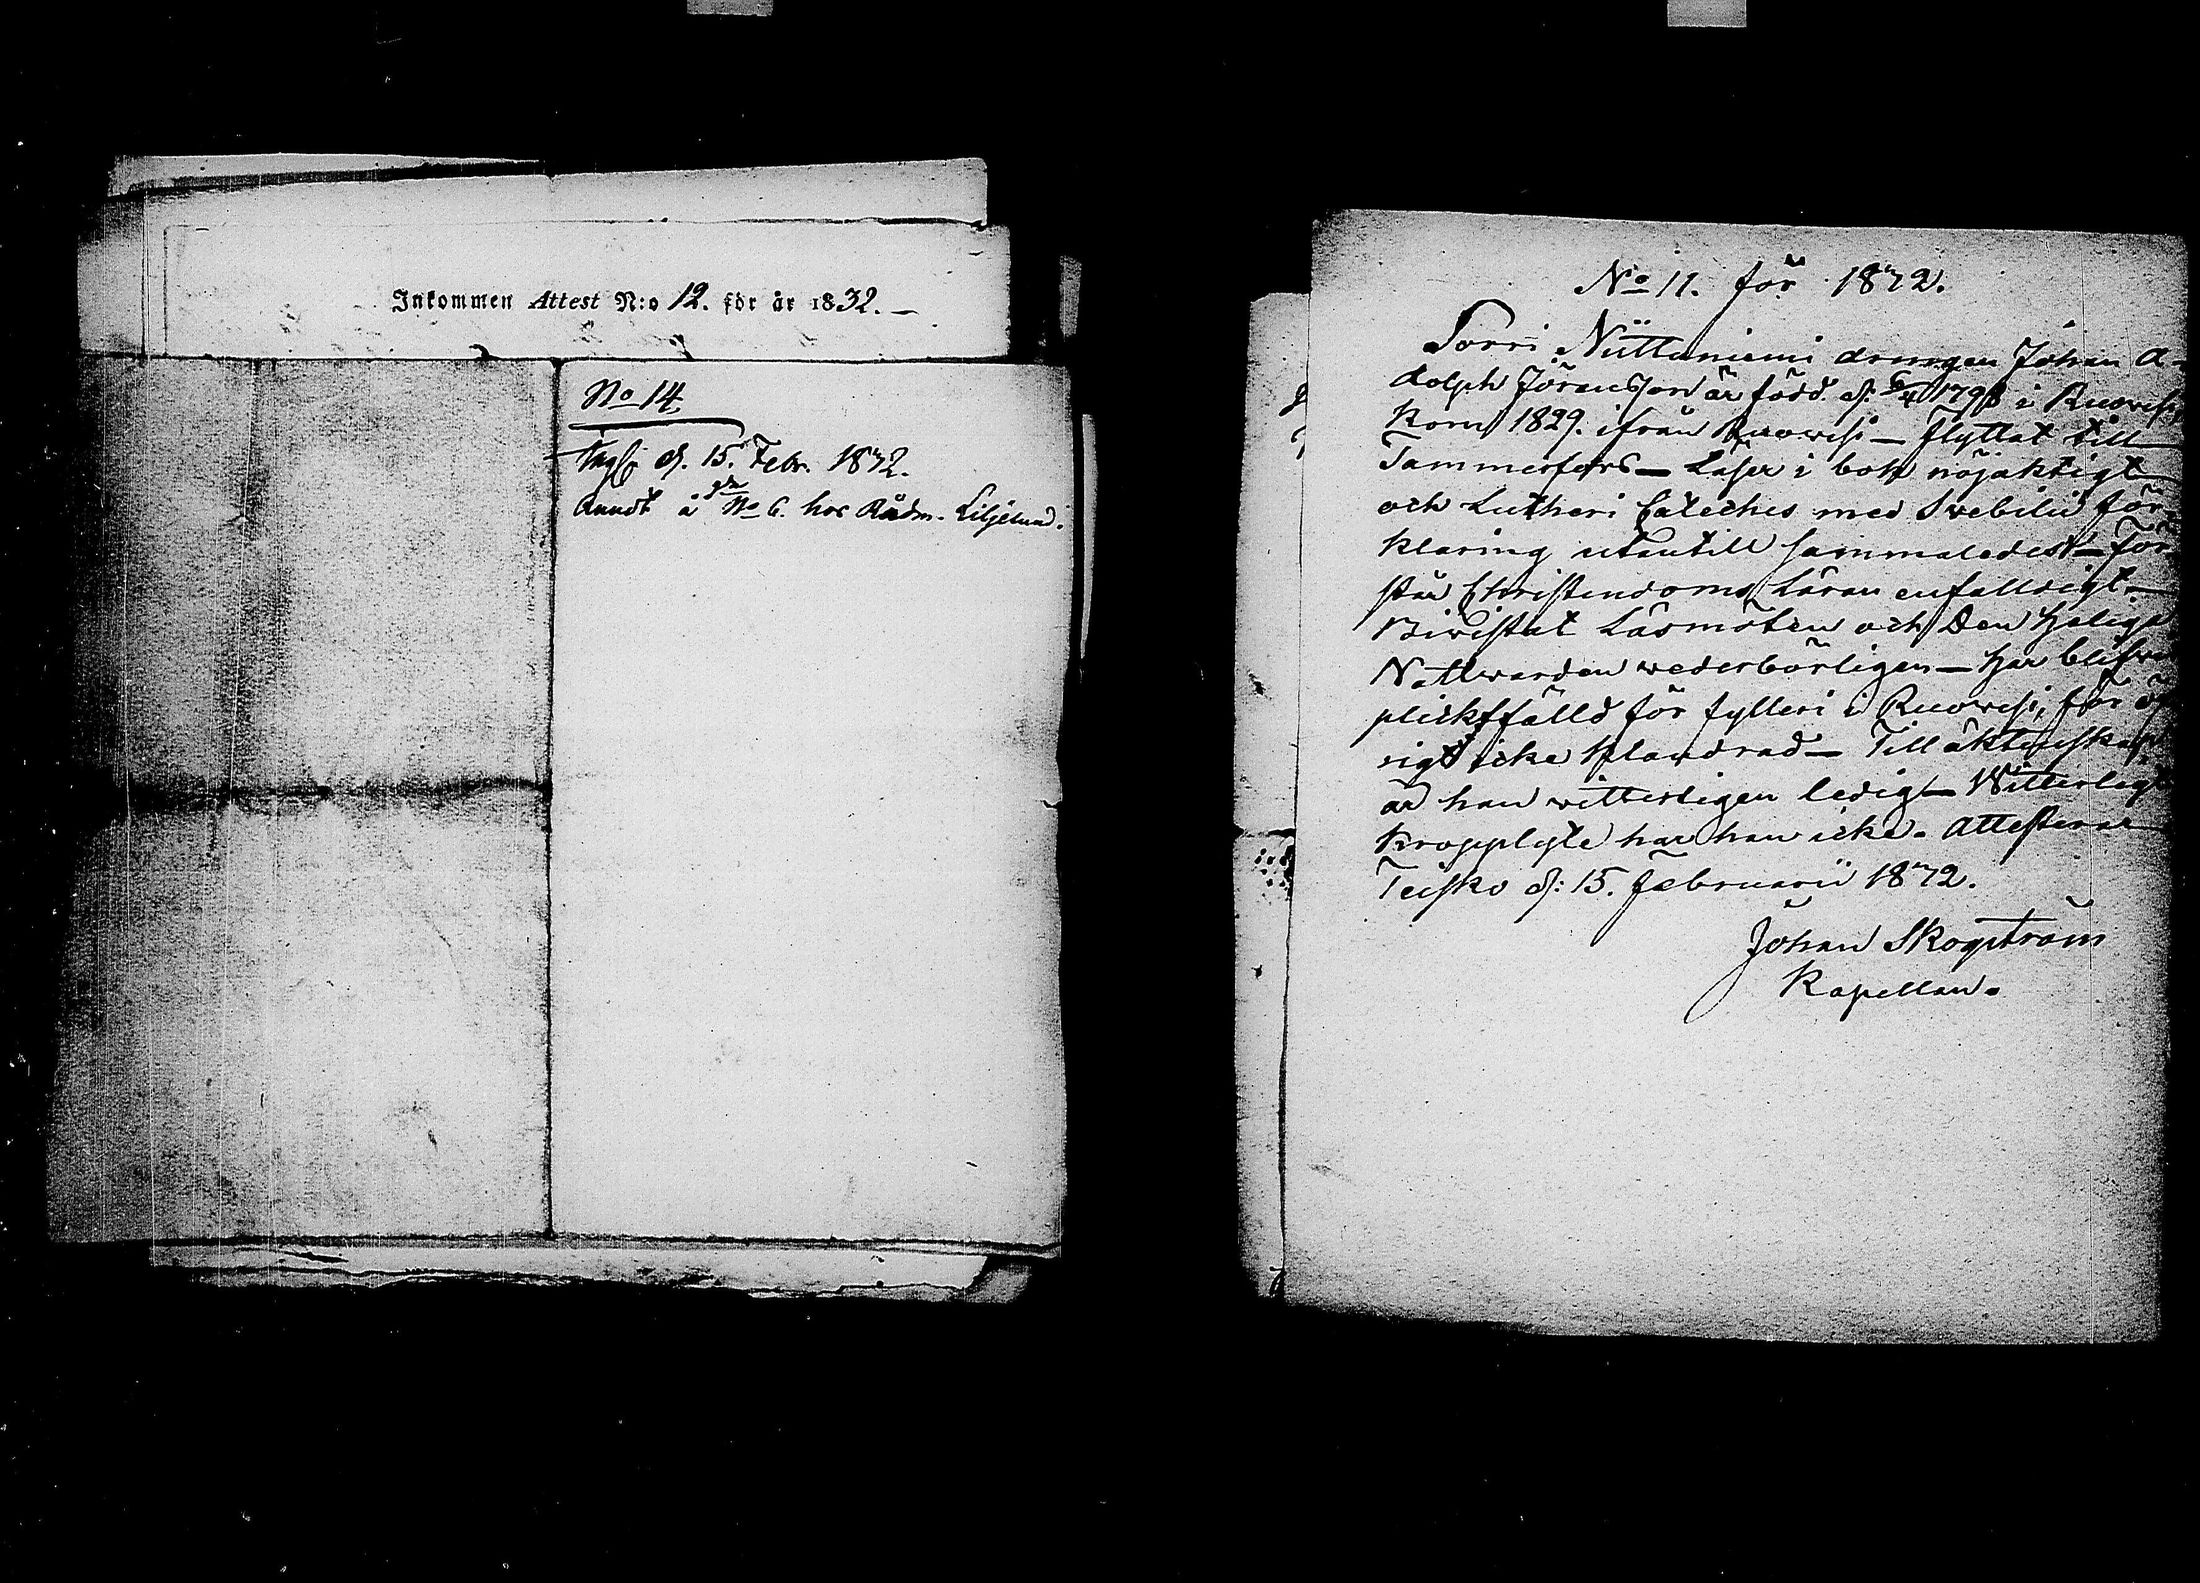 Inkommen Attest N:o 12. för år 1832. —
No 14.
d. 15. Febr. 1832.
å No 6. hos Rådm. Liljelund.
No 11. för 1832.
Sorri Niittuniemi drengen Johan A-
dolph Jöransson är född d: 6/4 1798 i Ruowesi
Kom 1829. ifrån Ruowesi — flyttat till
Tammerfors — Läser i bok nöjaktigt
och Lutheri Cateches med Swebilii för-
klaring utantill sammaledes — För-
står Christendoms Läran enfalldigt —
Biwistat Läsmöten och Den Heliga
Nattwarden wederbörligen — Har blifwit
plicktfälld för fylleri i Ruowesi, för öf-
rigt icke klandrad — Till äktenskap
är han witterligen ledig — Witterligt
kropplyte har han icke. Attesterar
Teisko d: 15. Februarii 1832.
Johan Skogström
Kapellan.